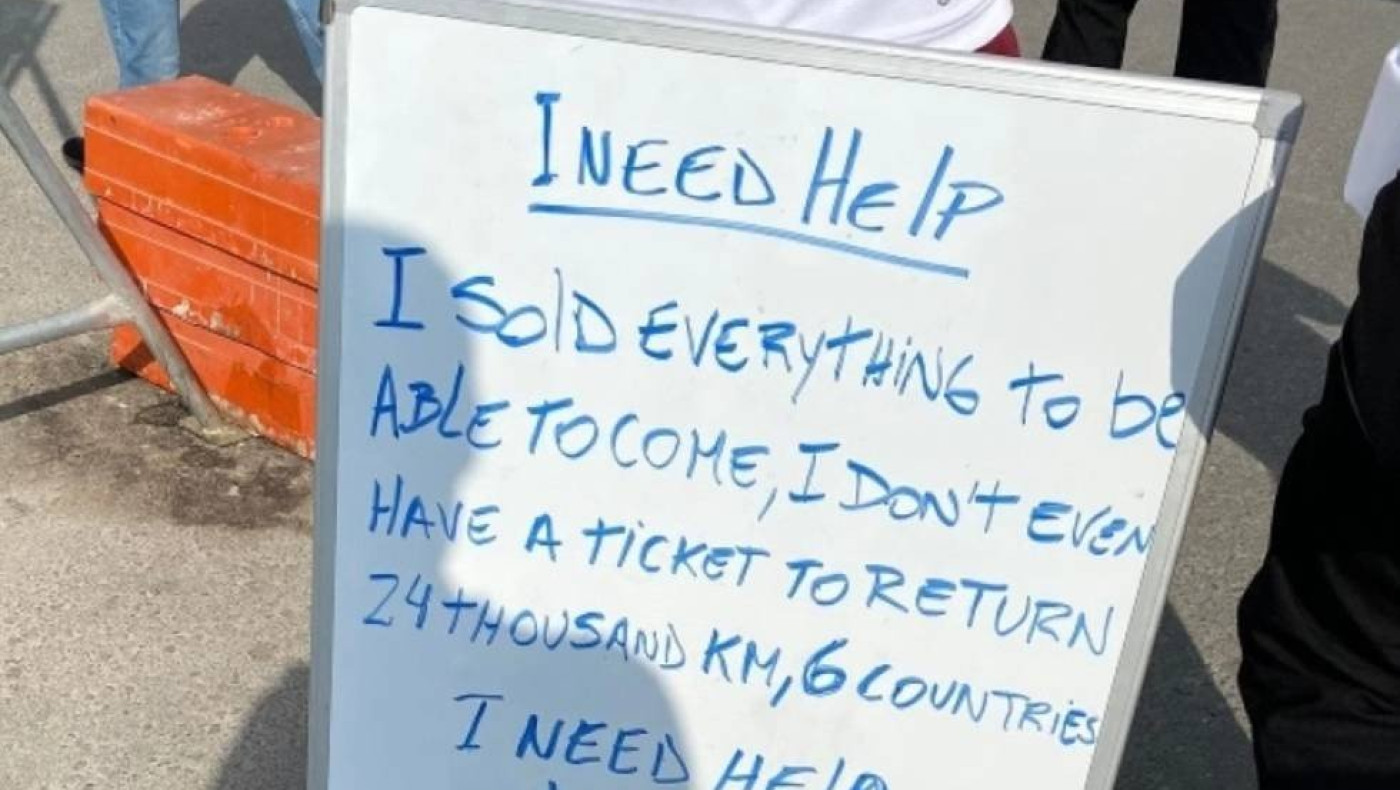 I NEED HElP
I SolD EVERyTHiNG To be
ABLE TO COME, I DON't EVEN
HAVE A tiCKET TO RETURN
24 tHOUSAND KM, 6 COUNTRiES
I NEED HElP